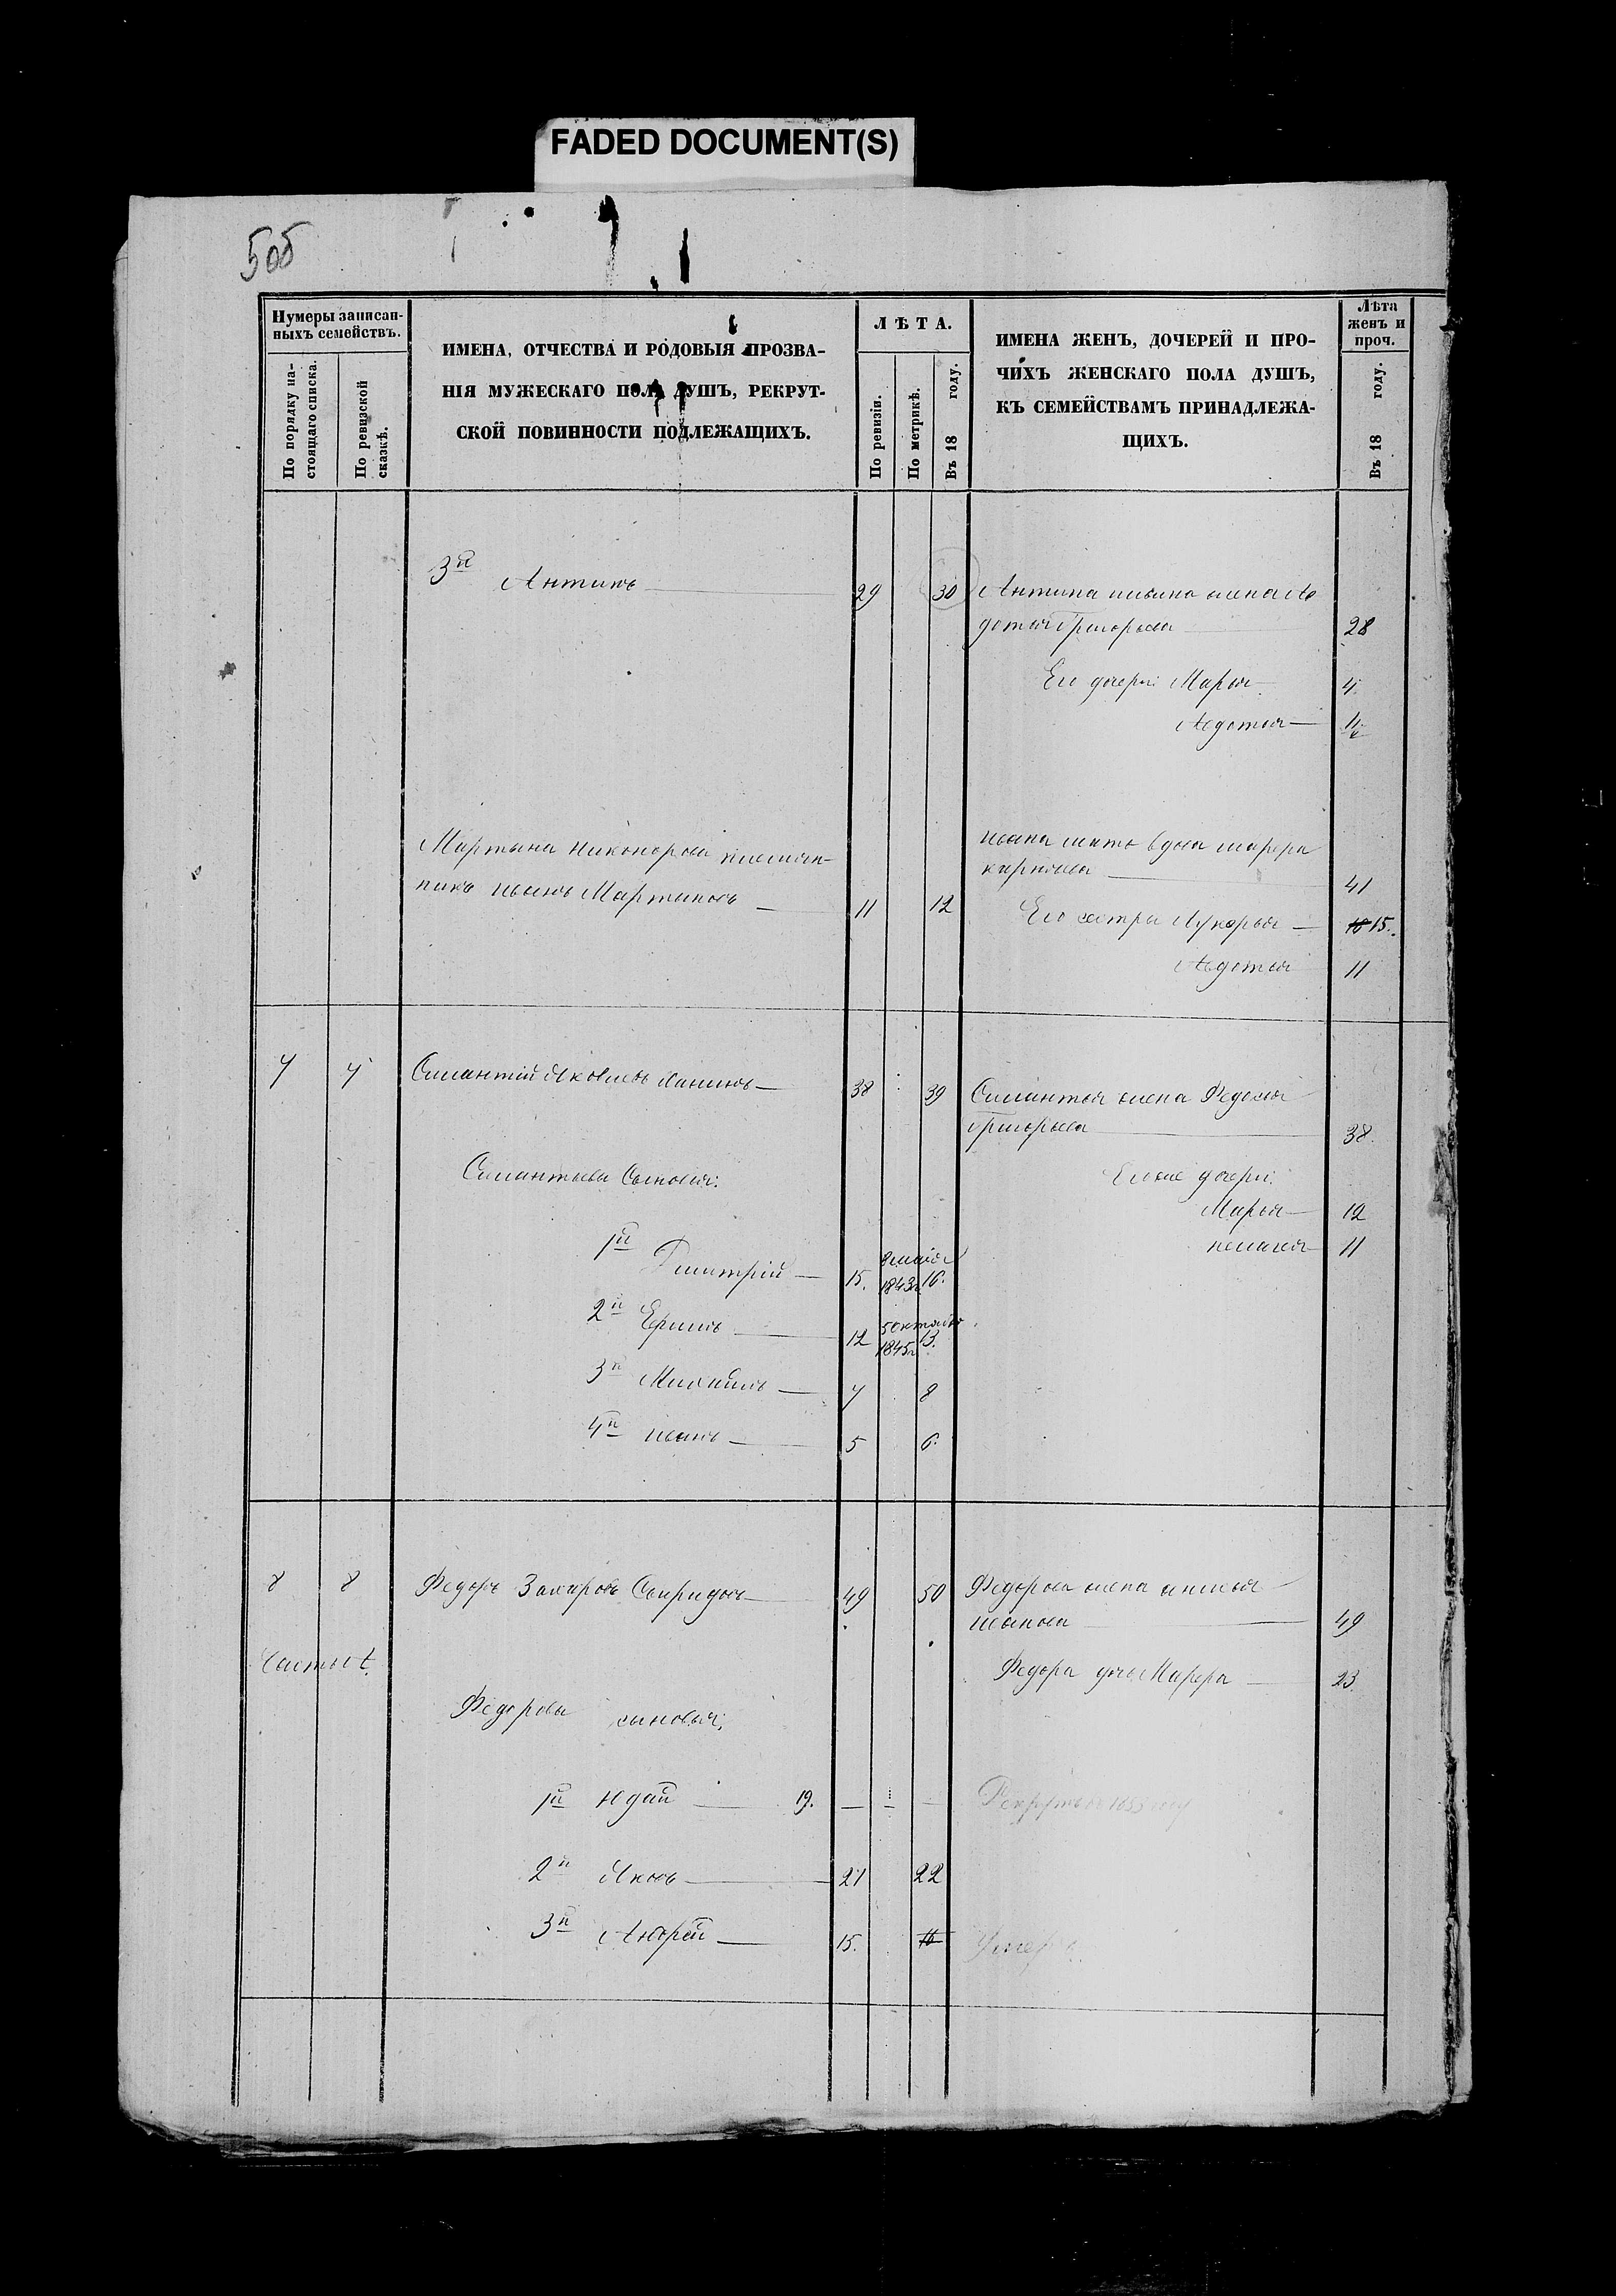 FADED DOCUMENT(S)
505
Нумеры записан-
ныхъ семействъ.
По порядку на-
стоящаго списка.
По ревизской
сказкѣ.
ИМЕНА, ОТЧЕСТВА И РОДОВЫЯ ПРОЗВА-
НІЯ МУЖЕСКАГО ПОЛА ДУШЪ, РЕКРУТ-
СКОЙ ПОВИННОСТИ ПОДЛЕЖАЩИХЪ.
ЛѢТА.
По ревизіи.
По метрикѣ.
Въ 18 году.
ИМЕНА ЖЕНЪ, ДОЧЕРЕЙ И ПРО-
ЧИХЪ ЖЕНСКАГО ПОЛА ДУШЪ,
КЪ СЕМЕЙСТВАМЪ ПРИНАДЛЕЖА-
ЩИХЪ.
Лѣта
женъ и
проч.
Въ 18 году.
3й Антипъ 29 30 Антипа жена Ав
дотья Григорьева 28
Его дочери: Марья 4
Авдотья
Мартына Никонорова племян-
никъ Иванъ Мартыновъ 11 12
Ивана мать вдова Марѳра
Карпова 41
Его сестры Лукерья 15.
Авдотья 11
7 7 Силантій Яковлевъ 38 39 Силантья жена Федосья
Григорьева 38.
Силантьевы Сыновья:
Его же дочери:
Марья 12
Пелагея 11
1й Дмитрій 15. 8 мая 1843г. 16.
2й Ефимъ 12 5 октября 1845г. 13.
3й Михайло 7 8
4й Иванъ 5 6.
8 8 Федоръ Захаровъ Свиридовъ 49 50 Федорова жена
Иванова 49
Федора дочь Марѳра 23.
Федоровы сыновья:
1й 19. Рекрутъ въ 1853 году
2й Яковъ 21 22
3й Андрей 15. 16 Умеръ